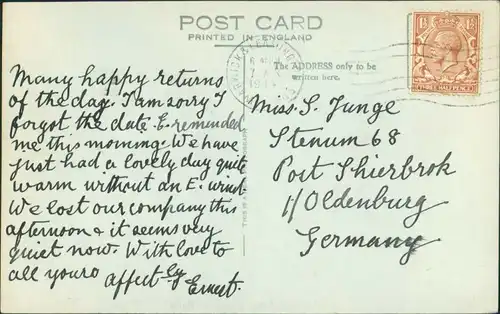 POST CARD
PRINTED IN ENGLAND
The ADDRESS only to be
written here.
THREE HALFPENCE
Many happy returns
of the day. I am sorry I
forgot the date. E. reminded
me this morning. We have
just had a lovely day quite
warm without an E. wind.
We lost our company this
afternoon & it seems very
quiet now. With love to
all yours affectly
Ernest.
Miss. S. Junge
Stenum 68
Post Shierbrok
i/Oldenburg
Germany